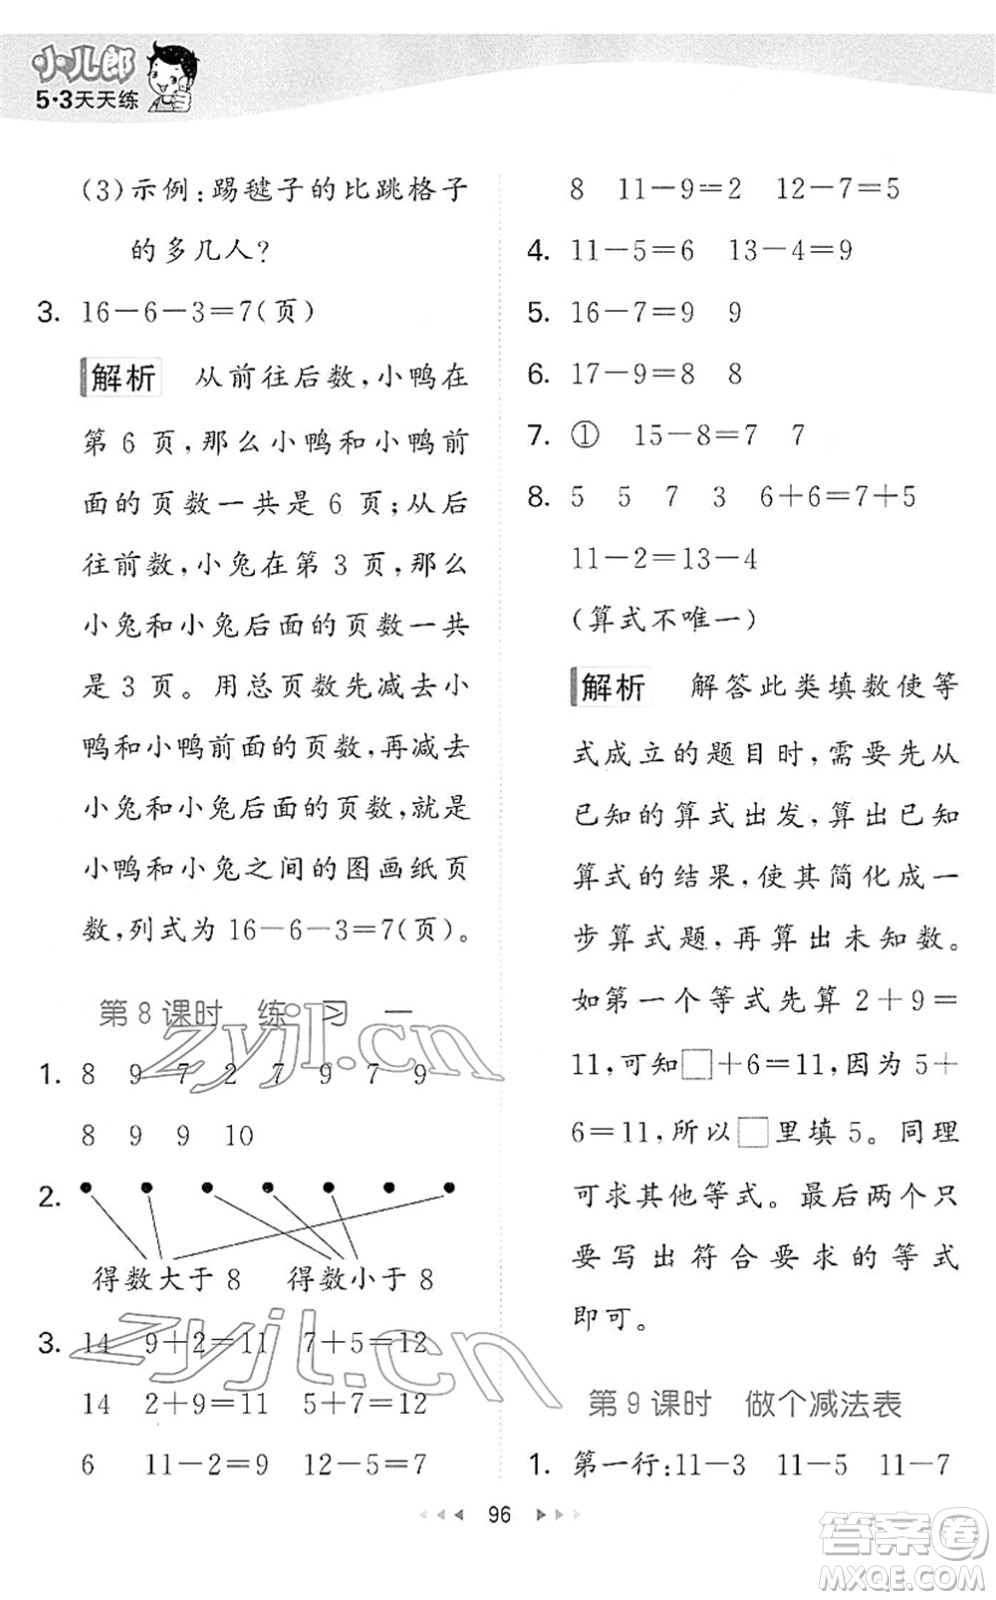 小儿郎
5·3天天练
(3)示例:踢毽子的比跳格子
的多几人?
3. 16－6－3＝7(页)
解析 从前往后数,小鸭在
第 6 页,那么小鸭和小鸭前
面的页数一共是 6 页;从后
往前数,小兔在第 3 页,那么
小兔和小兔后面的页数一共
是 3 页。用总页数先减去小
鸭和小鸭前面的页数,再减去
小兔和小兔后面的页数,就是
小鸭和小兔之间的图画纸页
数,列式为 16－6－3＝7(页)。
第 8 课时 练 习 一
1. 8 9 7 2 7 9 7 9
8 9 9 10
2.
得数大于 8 得数小于 8
3. 14 9＋2＝11 7＋5＝12
14 2＋9＝11 5＋7＝12
6 11－2＝9 12－5＝7
8 11－9＝2 12－7＝5
4. 11－5＝6 13－4＝9
5. 16－7＝9 9
6. 17－9＝8 8
7. ① 15－8＝7 7
8. 5 5 7 3 6＋6＝7＋5
11－2＝13－4
(算式不唯一)
解析 解答此类填数使等
式成立的题目时,需要先从
已知的算式出发,算出已知
算式的结果,使其简化成一
步算式题,再算出未知数。
如第一个等式先算 2＋9＝
11,可知□＋6＝11,因为 5＋
6＝11,所以□里填 5。同理
可求其他等式。最后两个只
要写出符合要求的等式
即可。
第 9 课时 做个减法表
1. 第一行:11－3 11－5 11－7
96
zyjl.cn
zyjl.cn
答案圈
MXQE.COM